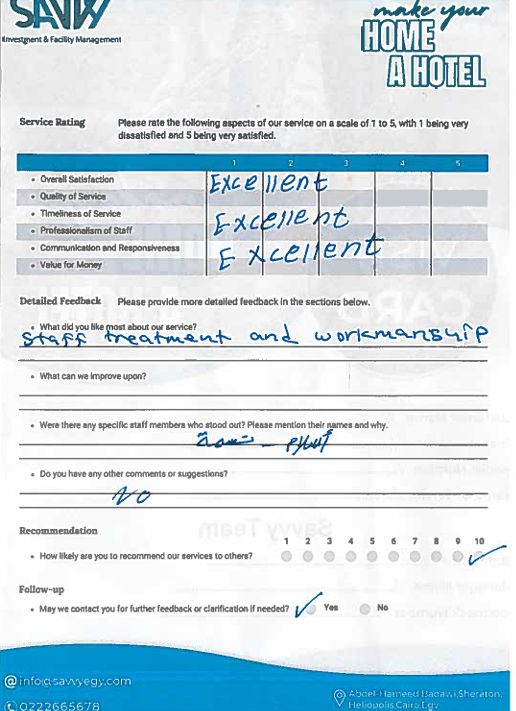 SAVVY
Investment & Facility Management
make your
HOME
A HOTEL
Service Rating Please rate the following aspects of our service on a scale of 1 to 5, with 1 being very
dissatisfied and 5 being very satisfied.
1 2 3 4 5
• Overall Satisfaction Excellent
• Quality of Service
• Timeliness of Service Excellent
• Professionalism of Staff
• Communication and Responsiveness Excellent
• Value for Money
Detailed Feedback Please provide more detailed feedback in the sections below.
• What did you like most about our service?
Staff treatment and workmanship
• What can we improve upon?
• Were there any specific staff members who stood out? Please mention their names and why.
• Do you have any other comments or suggestions?
NO
Recommendation
1 2 3 4 5 6 7 8 9 10
• How likely are you to recommend our services to others?
Follow-up
• May we contact you for further feedback or clarification if needed? Yes No
@ info@savvyegy.com
0222665678
Abdel-Hameed Badawi,Sheraton,
Heliopolis,Cairo,Egy